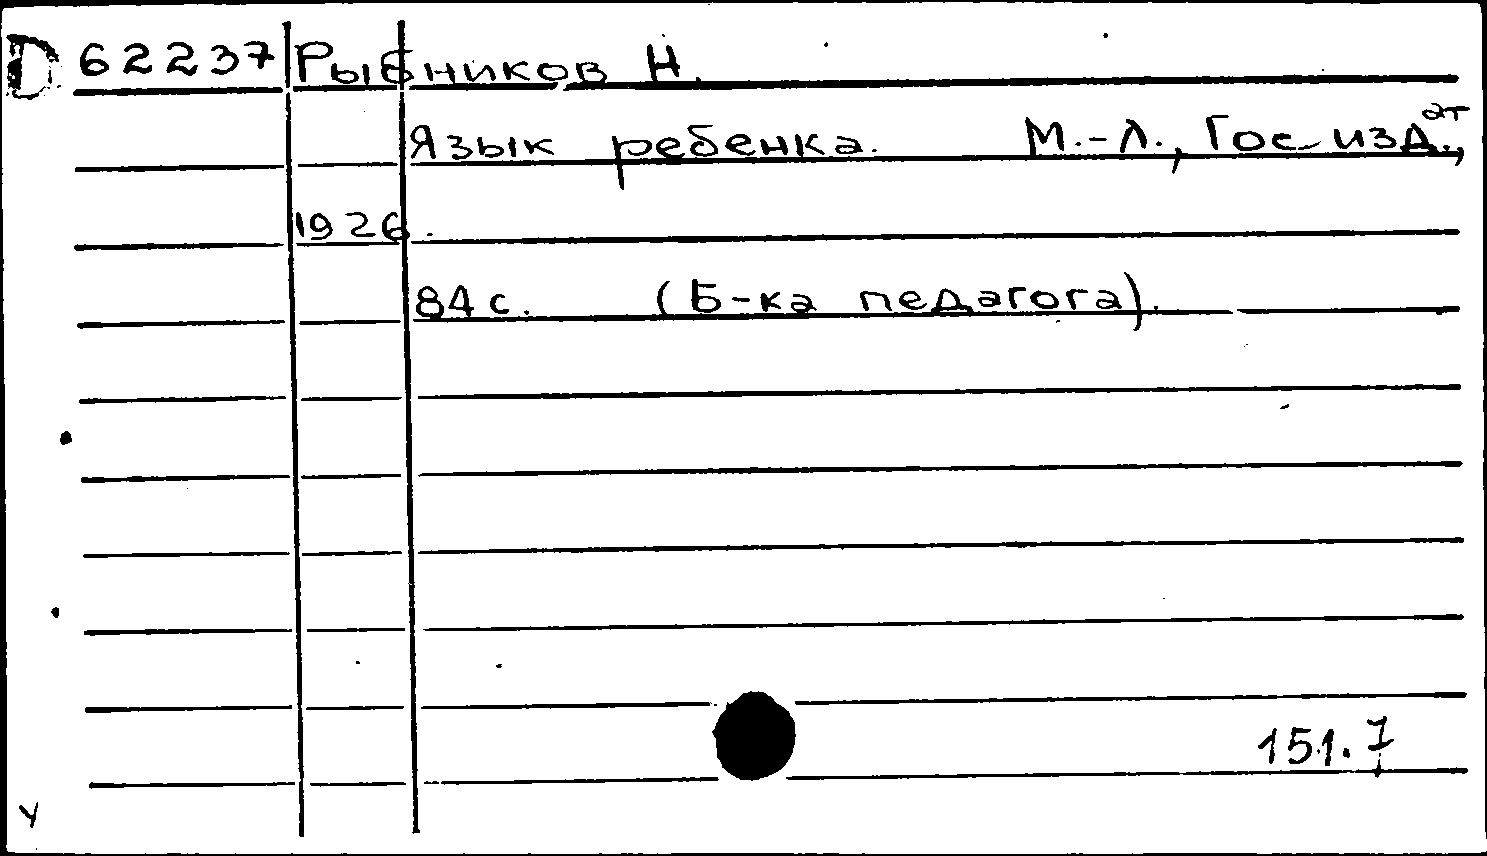 D 62237 Рыбников Н.
Язык ребенка. М.-Л., Гос. изд.ат,
1926.
84 с. (Б-ка педагога).
151.7
У